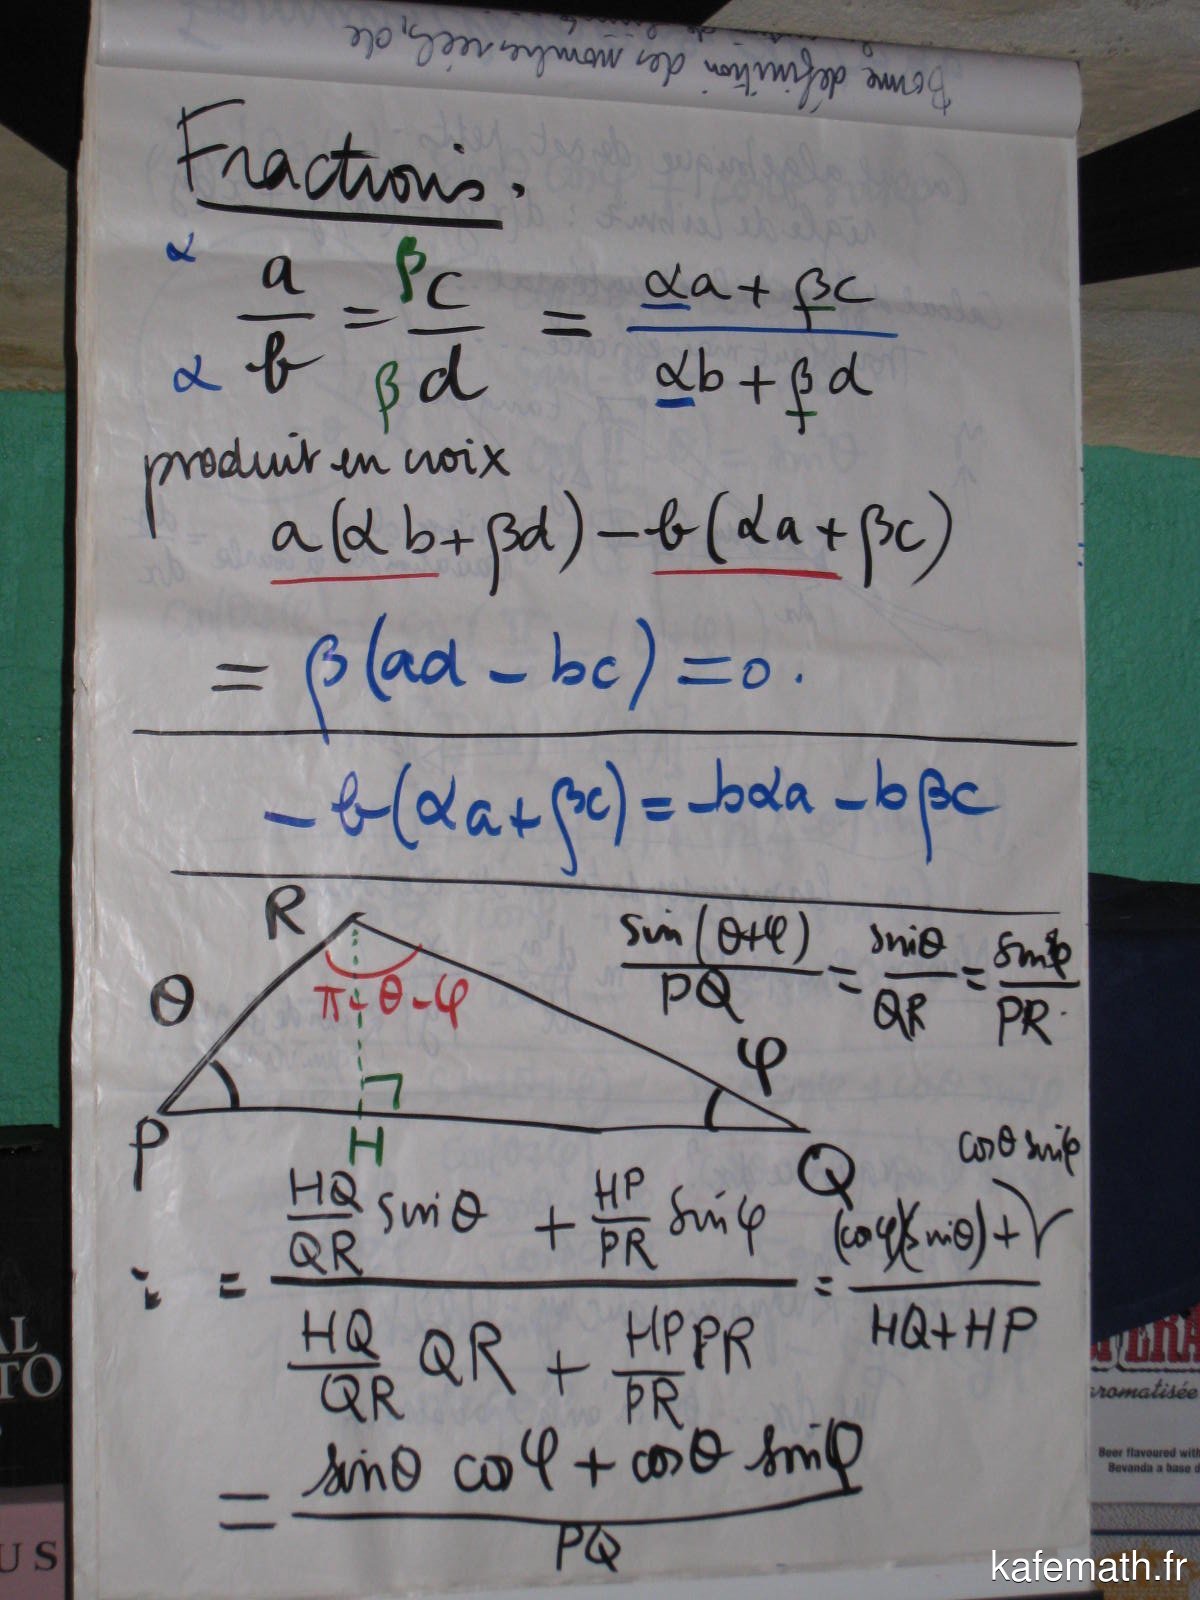 Bonne définition des nombres réels, de
Fractions.
α a/b α = β c/d β = (αa + βc)/(αb + βd)
produit en croix
a(αb + βd) – b(αa + βc)
= β(ad – bc) = 0.
– b(αa + βc) = –bαa – bβc
R
θ
π - θ - φ
φ
P
H
Q
sin(θ+φ)/PQ = sinθ/QR = sinφ/PR.
cosθ sinφ
= (HQ/QR sinθ + HP/PR sinφ)/(HQ/QR QR + HP/PR PR) = ((cosφ)(sinθ) +)/(HQ + HP)
= (sinθ cosφ + cosθ sinφ)/PQ
AL
TO
US
PERA
aromatisée
Beer flavoured with
Bevanda a base d
kafemath.fr